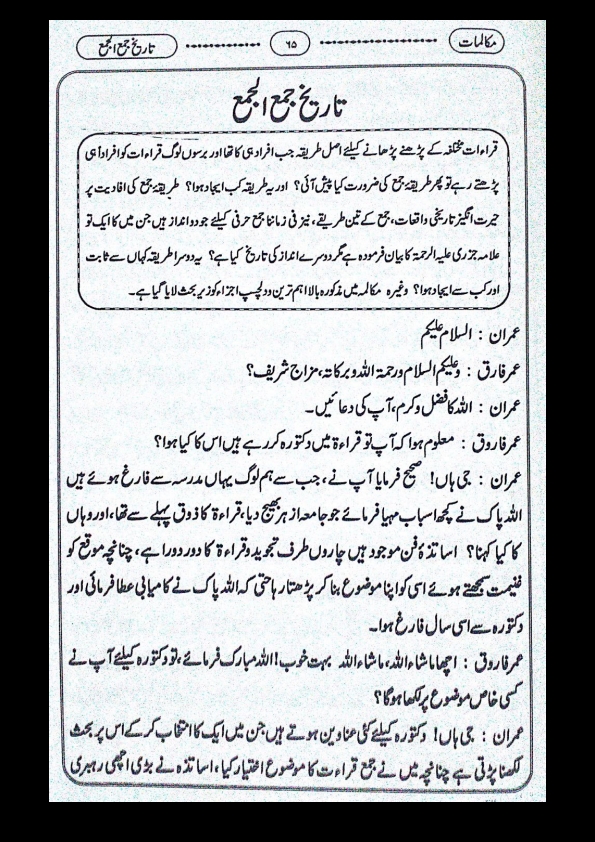 مکالمات ۶۵ تاریخ جمع الجمع
تاریخ جمع الجمع
قراءات مختلفہ کے پڑھنے پڑھانے کیلئے اصل طریقہ جب افراد ہی کا تھا اور برسوں لوگ قراءات کو افراداً ہی
پڑھتے رہے تو پھر طریقۂ جمع کی ضرورت کیا پیش آئی؟ اور یہ طریقہ کب ایجاد ہوا؟ طریقۂ جمع کی افادیت پر
حیرت انگیز تاریخی واقعات، جمع کے تین طریقے، نیز فی زماننا جمع حرفی کیلئے جو دو انداز ہیں جن میں کا ایک تو
علامہ جزری علیہ الرحمۃ کا بیان فرمودہ ہے مگر دوسرے انداز کی تاریخ کیا ہے؟ یہ دوسرا طریقہ کہاں سے ثابت
اور کب سے ایجاد ہوا؟ وغیرہ مکالمہ میں مذکورہ بالا اہم ترین و دلچسپ اجزاء کو زیر بحث لایا گیا ہے۔
عمران : السلام علیکم
عمر فارق : وعلیکم السلام ورحمۃ اللہ وبرکاتہ، مزاج شریف؟
عمران : اللہ کا فضل و کرم، آپ کی دعائیں۔
عمر فاروق : معلوم ہوا کہ آپ تو قراءۃ میں دکتورہ کر رہے ہیں اس کا کیا ہوا؟
عمران : جی ہاں! صحیح فرمایا آپ نے، جب سے ہم لوگ یہاں مدرسہ سے فارغ ہوئے ہیں
اللہ پاک نے کچھ اسباب مہیا فرمائے جو جامعہ ازہر بھیج دیا، قراءۃ کا ذوق پہلے سے تھا، اور وہاں
کا کیا کہنا؟ اساتذۂ فن موجود ہیں چاروں طرف تجوید و قراءۃ کا دور دورا ہے، چنانچہ موقع کو
غنیمت سمجھتے ہوئے اسی کو اپنا موضوع بنا کر پڑھتا رہا حتی کہ اللہ پاک نے کامیابی عطا فرمائی اور
دکتورہ سے اسی سال فارغ ہوا۔
عمر فاروق : اچھا ماشاء اللہ، ماشاء اللہ بہت خوب! اللہ مبارک فرمائے، تو دکتورہ کیلئے آپ نے
کسی خاص موضوع پر لکھا ہوگا؟
عمران : جی ہاں! دکتورہ کیلئے کئی عناوین ہوتے ہیں جن میں ایک کا انتخاب کر کے اس پر بحث
لکھنا پڑتی ہے چنانچہ میں نے جمع قراءت کا موضوع اختیار کیا، اساتذہ نے بڑی اچھی رہبری